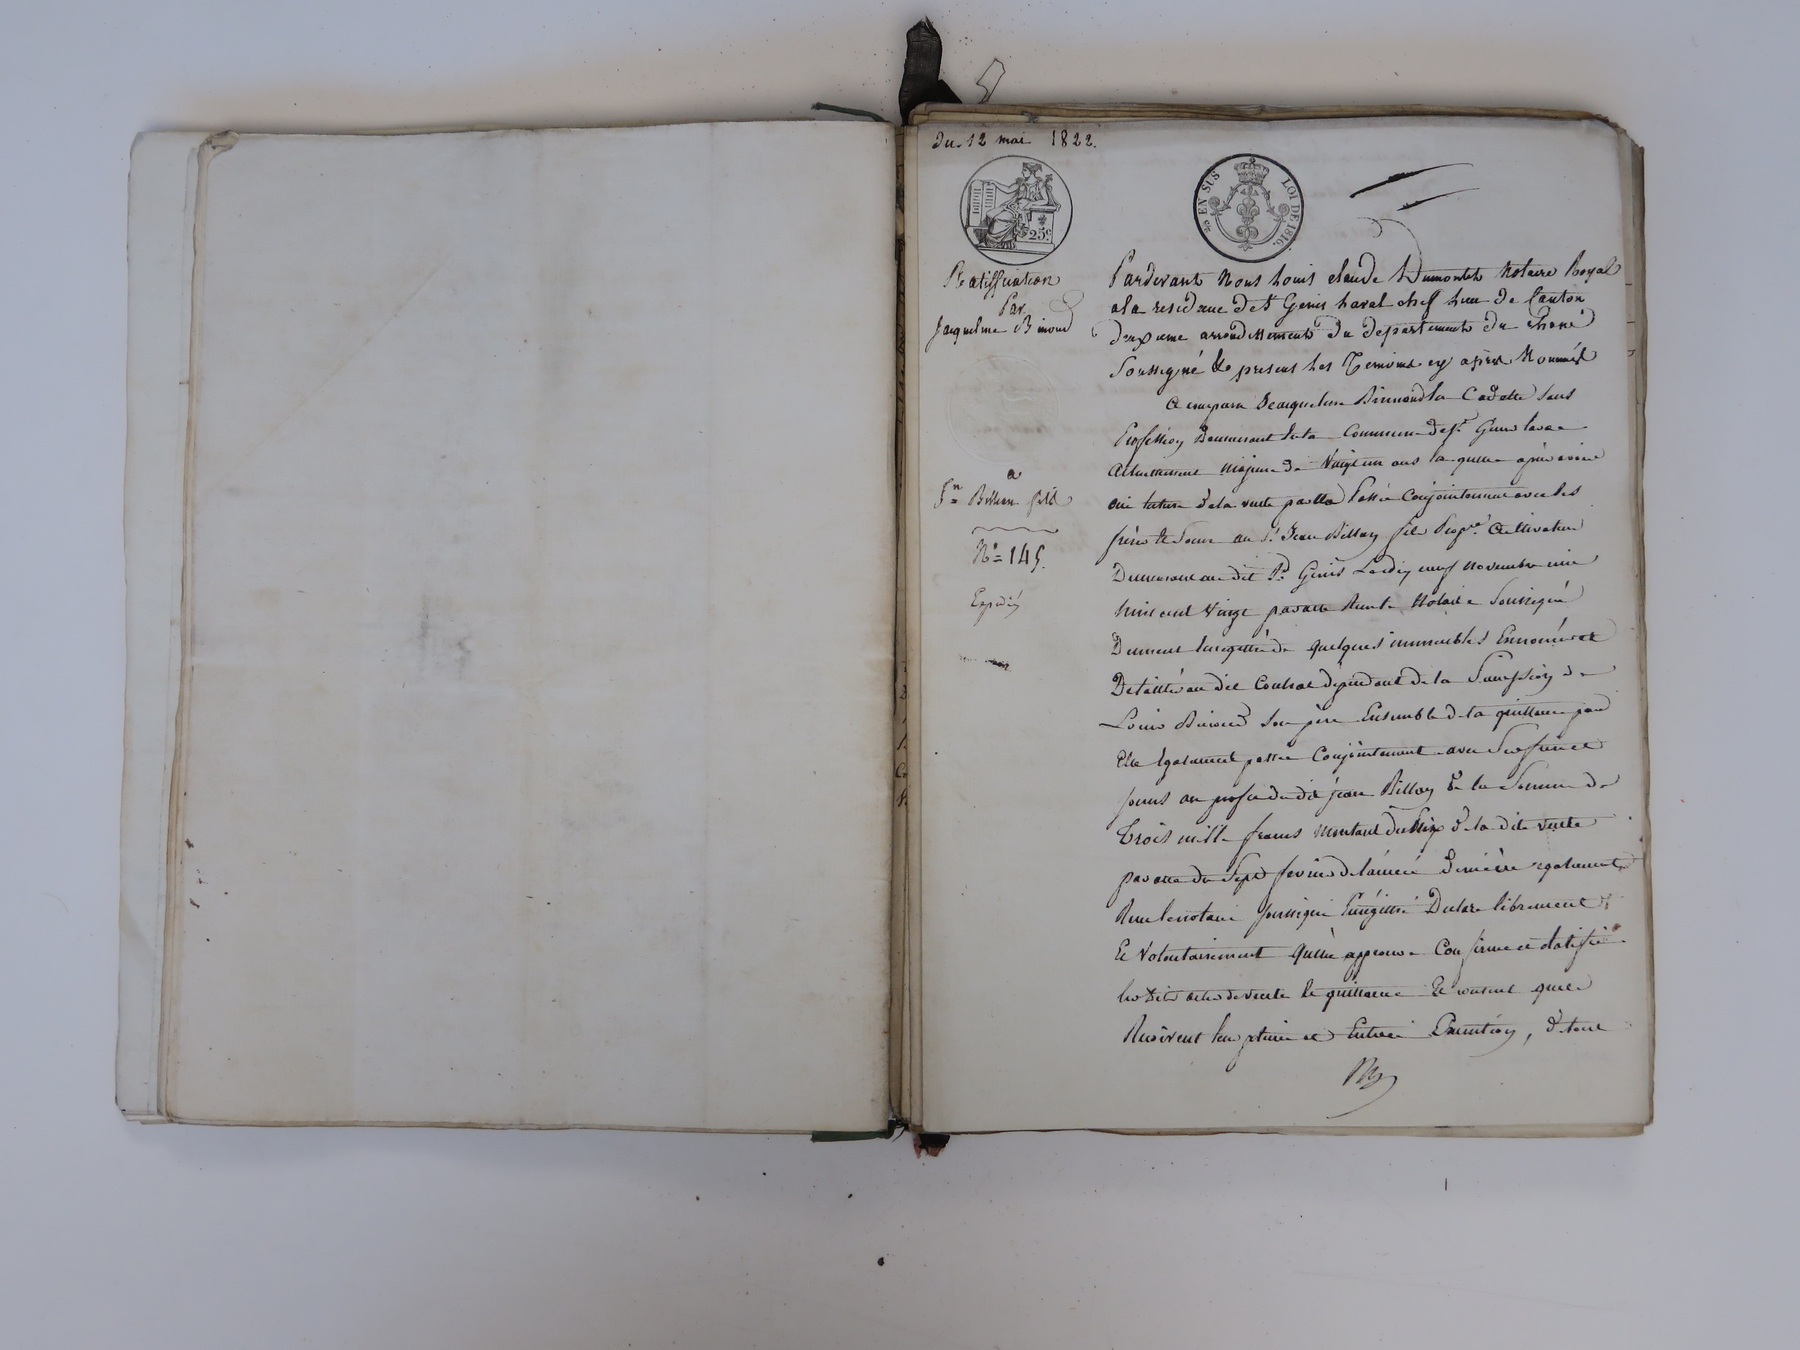 Du 12 mai 1822.
25c
25 EN SUS LOI DE 1816.
Ratiffication
Par
Jacqueline Bimond
a
Jn Billion fils
No = 145.
Expedié
Pardevant Nous Louis claude Dumontet Notaire Royal
a la residence de St Genis Laval chef lieu de Canton
deuxieme arrondissement du departement du Rhone
Soussigné & presens les Temoins cy après Nommés
a comparu Jacqueline Bimond la Cadette sans
Profession Demeurant sur la Commune de St. Genis Laval
Actuellement majeure de Vingt un ans laquelle après avoir
oui lecture de la vente par elle Passée Conjointement avec ses
frères & Soeur au Sr. Jean Billion fils Propre. Cultivateur
Demeurant au dit St. Genis Le dix neuf novembre mil
huit cent vingt par acte Recu le Notaire Soussigné
Dument Enregistré de quelques immeubles Ennoncés et
Détaillés au dit Contrat dépendant de la Succession de
Louis Bimond son père Ensemble de la quittance par
Elle Egalement passée Conjointement avec Ses frères et
soeurs au profit du dit jean Billion de la Somme de
Trois mille francs montant du Prix de la dite vente
par acte du Sept fevrier de l'année dernière egalement
Recu le notaire soussigné Enregistré Declare librement
Et Volontairement qu'elle approuve Confirme et Ratiffie
les dits actes de vente & quittance Et consent qu'ils
Recoivent leur pleine et Entiere Execution, de tout